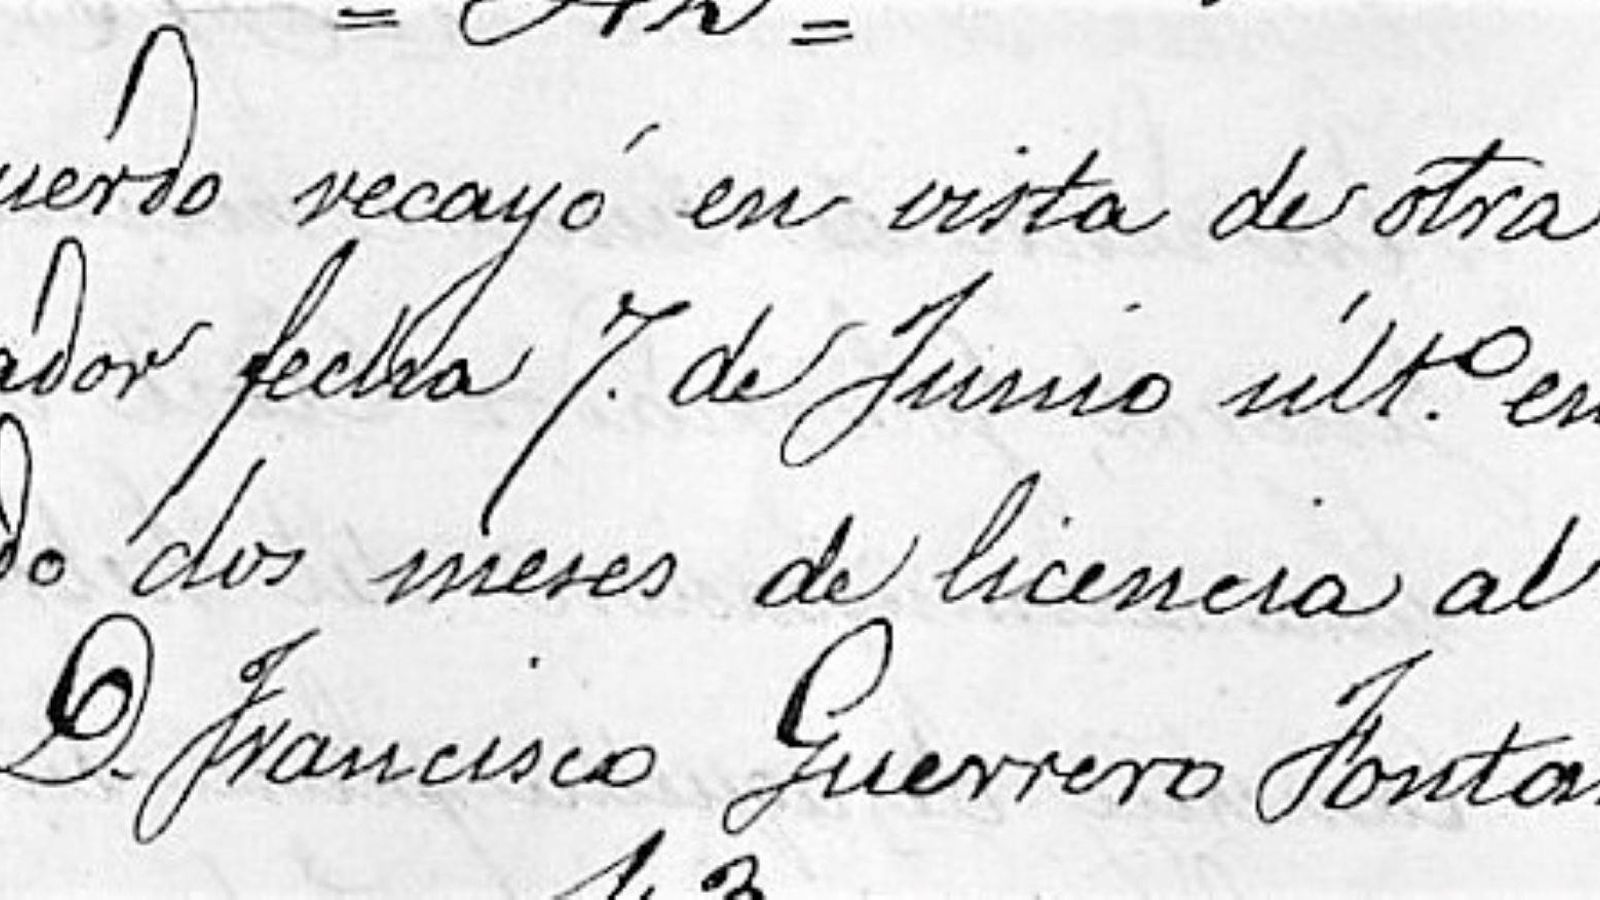 uerdo recayó en vista de otra
ador fecha 7. de Junio últ.º en
do dos meses de licencia al
D. Francisco Guerrero Fontan